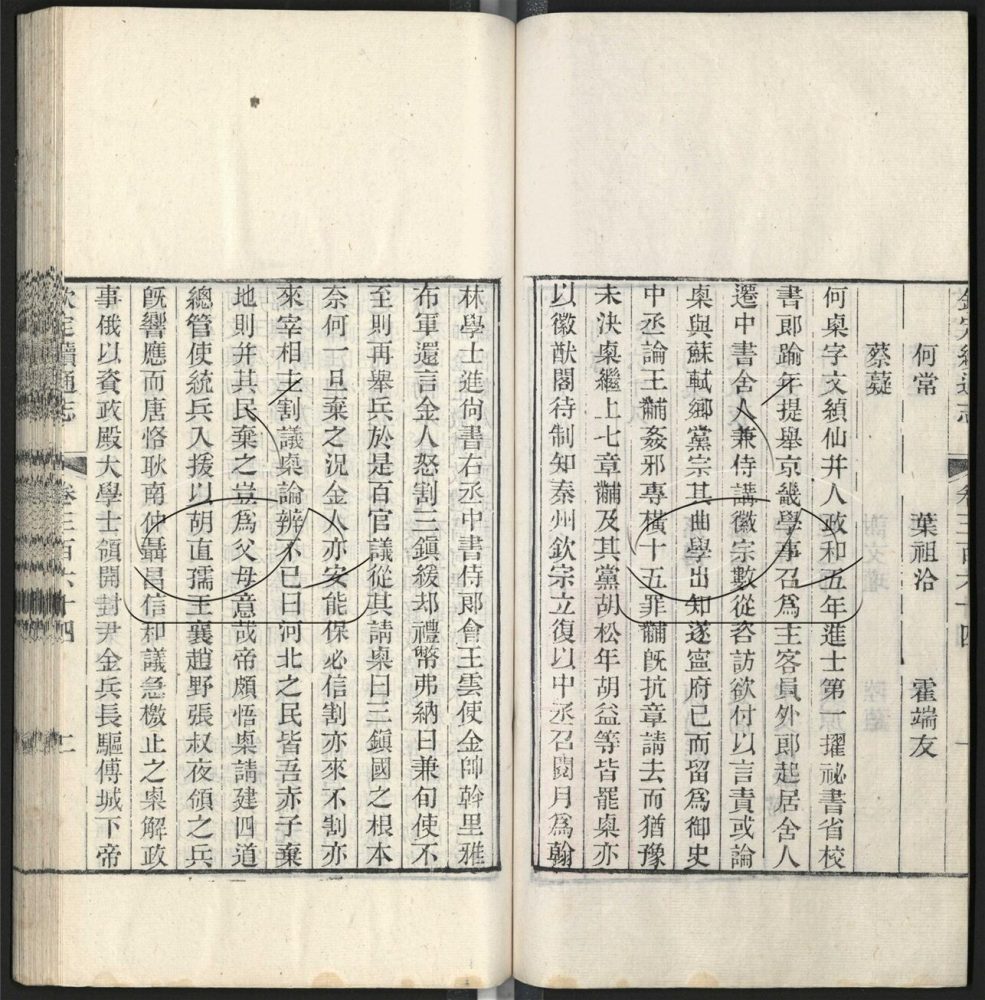 欽定續通志 卷三百六十四 一
何常 葉祖洽 霍端友
蔡薿
何㮚字文縝仙井人政和五年進士第一擢祕書省校
書郎踰年提舉京畿學事召爲主客員外郎起居舍人
遷中書舍人兼侍講徽宗數從咨訪欲付以言責或論
㮚與蘇軾鄉黨宗其曲學出知遂寧府已而留爲御史
中丞論王黼姦邪專橫十五罪黼旣抗章請去而猶豫
未決㮚繼上七章黼及其黨胡松年胡益等皆罷㮚亦
以徽猷閣待制知泰州欽宗立復以中丞召閱月爲翰
林學士進尙書右丞中書侍郎會王雲使金帥斡里雅
布軍還言金人怒割三鎭緩却禮幣弗納曰兼旬使不
至則再舉兵於是百官議從其請㮚曰三鎭國之根本
奈何一旦棄之況金人亦安能保必信割亦來不割亦
來宰相主割議㮚論辨不已曰河北之民皆吾赤子棄
地則并其民棄之豈爲父母意哉帝頗悟㮚請建四道
總管使統兵入援以胡直孺王襄趙野張叔夜領之兵
旣響應而唐恪耿南仲聶昌信和議急檄止之㮚解政
事俄以資政殿大學士領開封尹金兵長驅傅城下帝
欽定續通志 卷三百六十四 二